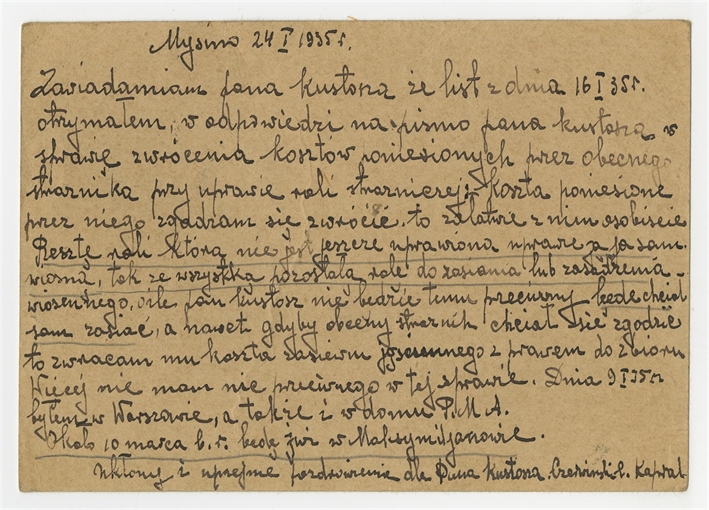 Mysino 24 I 1935 r.
Zawiadamiam pana kustosza że list z dnia 16 I 35 r.
otrzymałem, w odpowiedzi na pismo pana kustosza w
sprawie zwrócenia kosztów poniesionych przez obecnego
strażnika przy uprawie roli strażniczej; Koszta poniesione
przez niego zgadzam się zwrócić, to załatwię z nim osobiście
Resztę roli którą nie jest jeszcze uprawiona uprawię ja sam
wiosną, tak że wszystką pozostałą rolę do zasiania lub zasadzenia
wiosennego, o ile pan kustosz nie będzie temu przeciwny będę chciał
sam zasiać, a nawet gdyby obecny strażnik chciał się zgodzić
to zwracam mu koszta zasiewu jesiennego z prawem do zbioru
Więcej nie mam nic przeciwnego w tej sprawie. Dnia 9 I 35 r.
byłem w Warszawie, a także i w domu P.M.A.
Około 10 marca b.r. będę już w Maksymiljanowie.
Ukłony i uprzejme pozdrowienia dla Pana Kustosza Czerwiński kapral